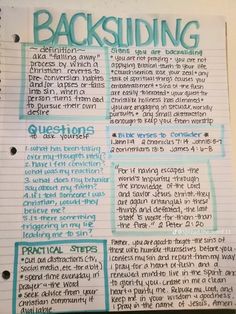 BACKSLIDING
~ definition ~
aka "falling away"
process by which a
Christian reverts to
pre conversion habits
and/or lapses or falls
into sin, when a
person turns from God
to pursue their own
desire
Signs you are backsliding
• you are not praying • you are not
applying biblical truth to your life
• church services lose your zeal • any
talk of spiritual things causes you
embarrassment • sins of the flesh
are easily tolerated • your quest for
Christlike holiness has dimmed •
you are engaging in sensual, worldly
pursuits • any small distraction
is enough to keep you from worship
Questions
to ask yourself
1. what has been taking
over my thoughts lately?
2. have I felt conviction?
what was my reaction?
3. what does my behavior
say about my faith?
4. if I told someone I was
Christian, would they
believe me?
5. is there something
triggering in my life
leading me to sin?
* Bible verses to Consider *
John 1:9
2 Chronicles 7:14
2 Corinthians 13:5
James 4:6-8
"For if having escaped the
world's impurity through
the knowledge of the Lord
and Savior Jesus Christ, they
are again entangled in these
things and defeated, the last
state is worse for them than
the first." 2 Peter 2:20
PRACTICAL STEPS
• cut out distractions (tv,
social media, etc for a bit)
• spend time everyday in
prayer + the Word
• seek advice from your
Christian community if
available
Father, you are good to forgive the sins of
those who humble themselves before you.
I confess my sin and repent from my way.
I pray for a fresh of flesh and a
renewed mind to live in the Spirit and
to glorify you. Create in me a clean
heart + purify me. Rebuke my lack and
keep me in your wisdom + goodness.
I pray in the name of Jesus, Amen